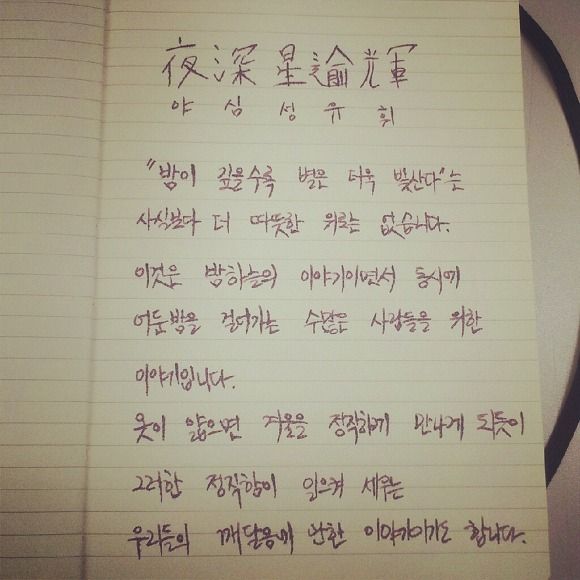 夜深星逾輝
야 심 성 유 휘
"밤이 깊을수록 별은 더욱 빛난다"는
사실보다 더 따뜻한 위로는 없습니다.
이것은 밤하늘의 이야기이면서 동시에
어둔밤을 걸어가는 수많은 사람들을 위한
이야기입니다.
옷이 얇으면 겨울을 정직하게 만나게 되듯이
그러한 정직함이 일으켜 세우는
우리들의 깨달음에 관한 이야기이기도 합니다.